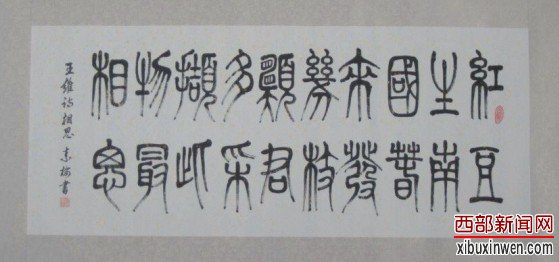 紅豆
生南
國春
來發
幾枝
願君
多采
擷此
物最
相思
王維詩相思 素梅書
西部新闻网
xibuxinwen.com